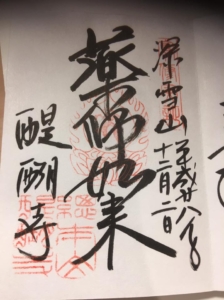 深雪山
平成廿八年
十二月二日
薬師如来
醍醐寺